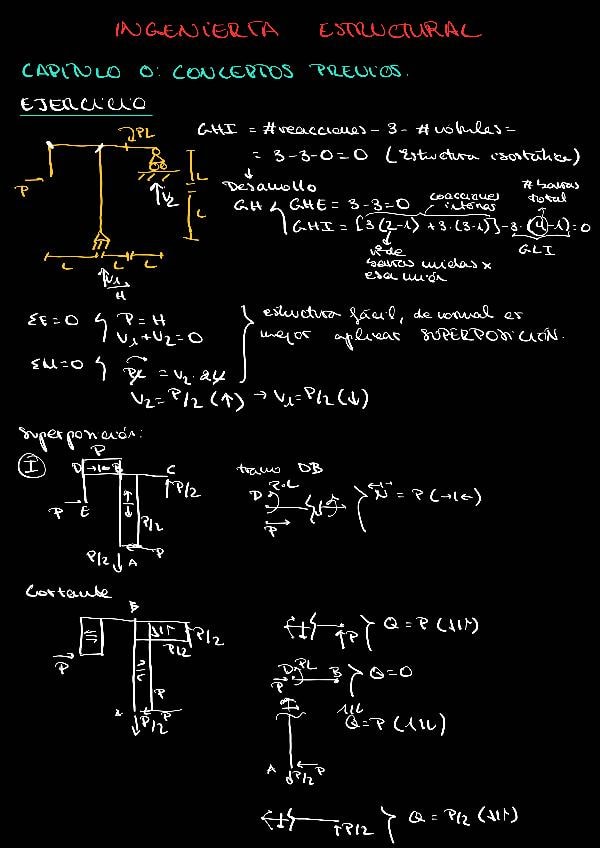 INGENIERÍA ESTRUCTURAL
CAPÍTULO 0: CONCEPTOS PREVIOS.
EJERCICIO
PL
P
L
L
V2
L L L
V1
H
GHI = #reacciones - 3 - #rótulas =
= 3-3-0=0 (Estructura isostática)
Desarrollo
GH GHE = 3-3=0
coacciones internas
# barras total
GHI = [3(2-1) + 3·(3-1)] - 3·(4-1)=0
nº de barras unidas x esa unión
GLI
ΣF=0 P = H
V1+V2=0
ΣM=0 PL = V2·2L
V2=P/2 (↑) → V1=P/2 (↓)
estructura fácil, de normal es
mejor aplicar SUPERPOSICIÓN.
Superposición:
I
P
D →|← B C
P E P/2
P/2
P
P/2 A
tramo DB
D P·L
P
N = P (→|←)
Cortante
B
P/2
P/2
P
P
P
P/2
P
Q = P (↓|↑)
D PL B
P
Q=0
Q=P
A P
P/2
P/2
Q = P/2 (↓|↑)